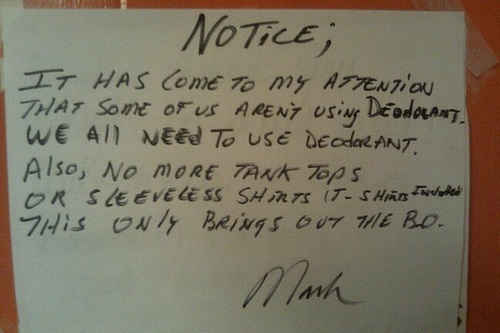 NOTICE;
IT HAS COME TO MY ATTENTION
THAT SOME OF US AREN'T USING DEODORANT.
WE All NEED TO USE DEODORANT.
Also, NO MORE TANK TOPS
OR SLEEVELESS SHIRTS (T-SHIRTS Included
THIS ONLY BRINGS OUT THE B.O.
Mark